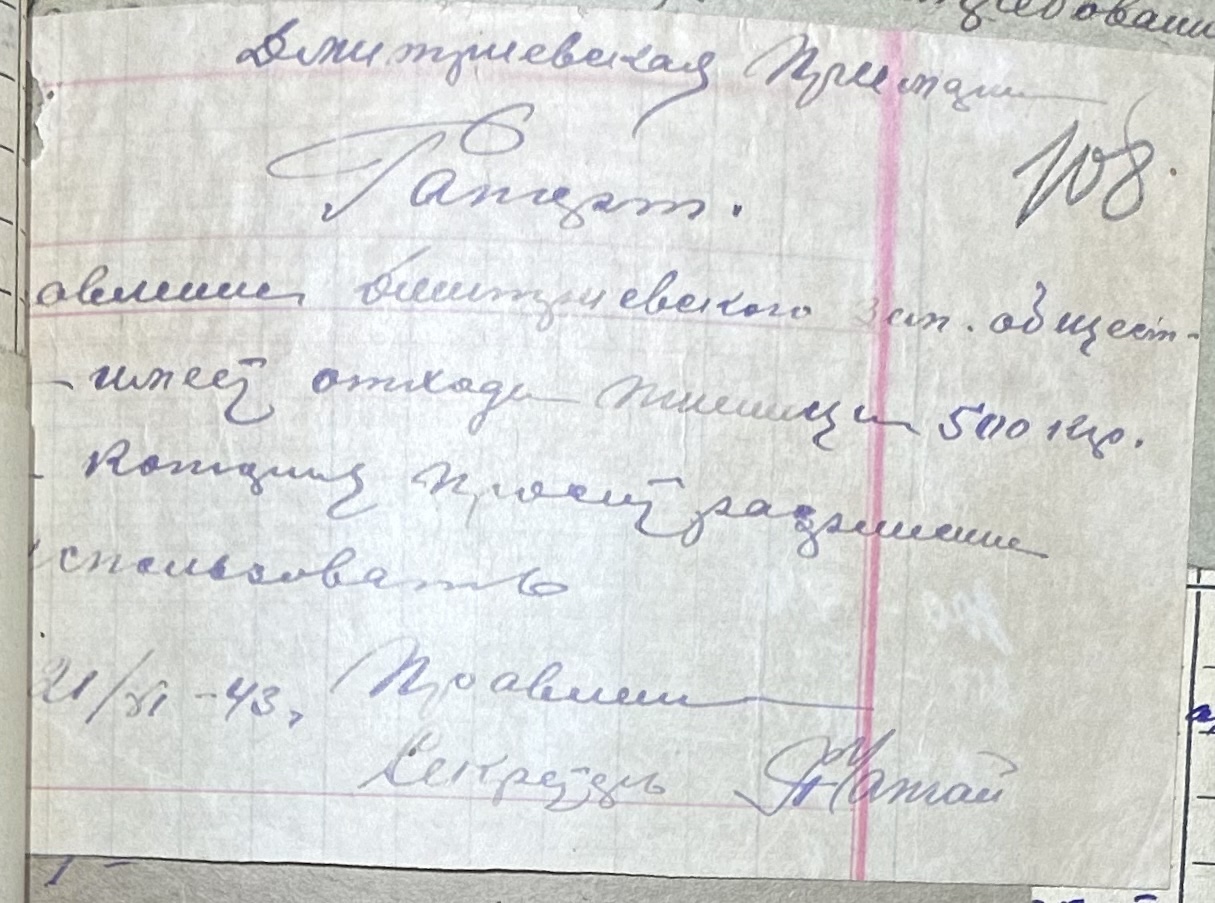 требовани
Дмитриевская
108.
Рапорт.
авлении Дмитриевского Зем. общест-
имеет отходы пшеницы 500 кгр.
Которые просит разрешение
использовать
21/XI - 43,
Правлени
Секретарь